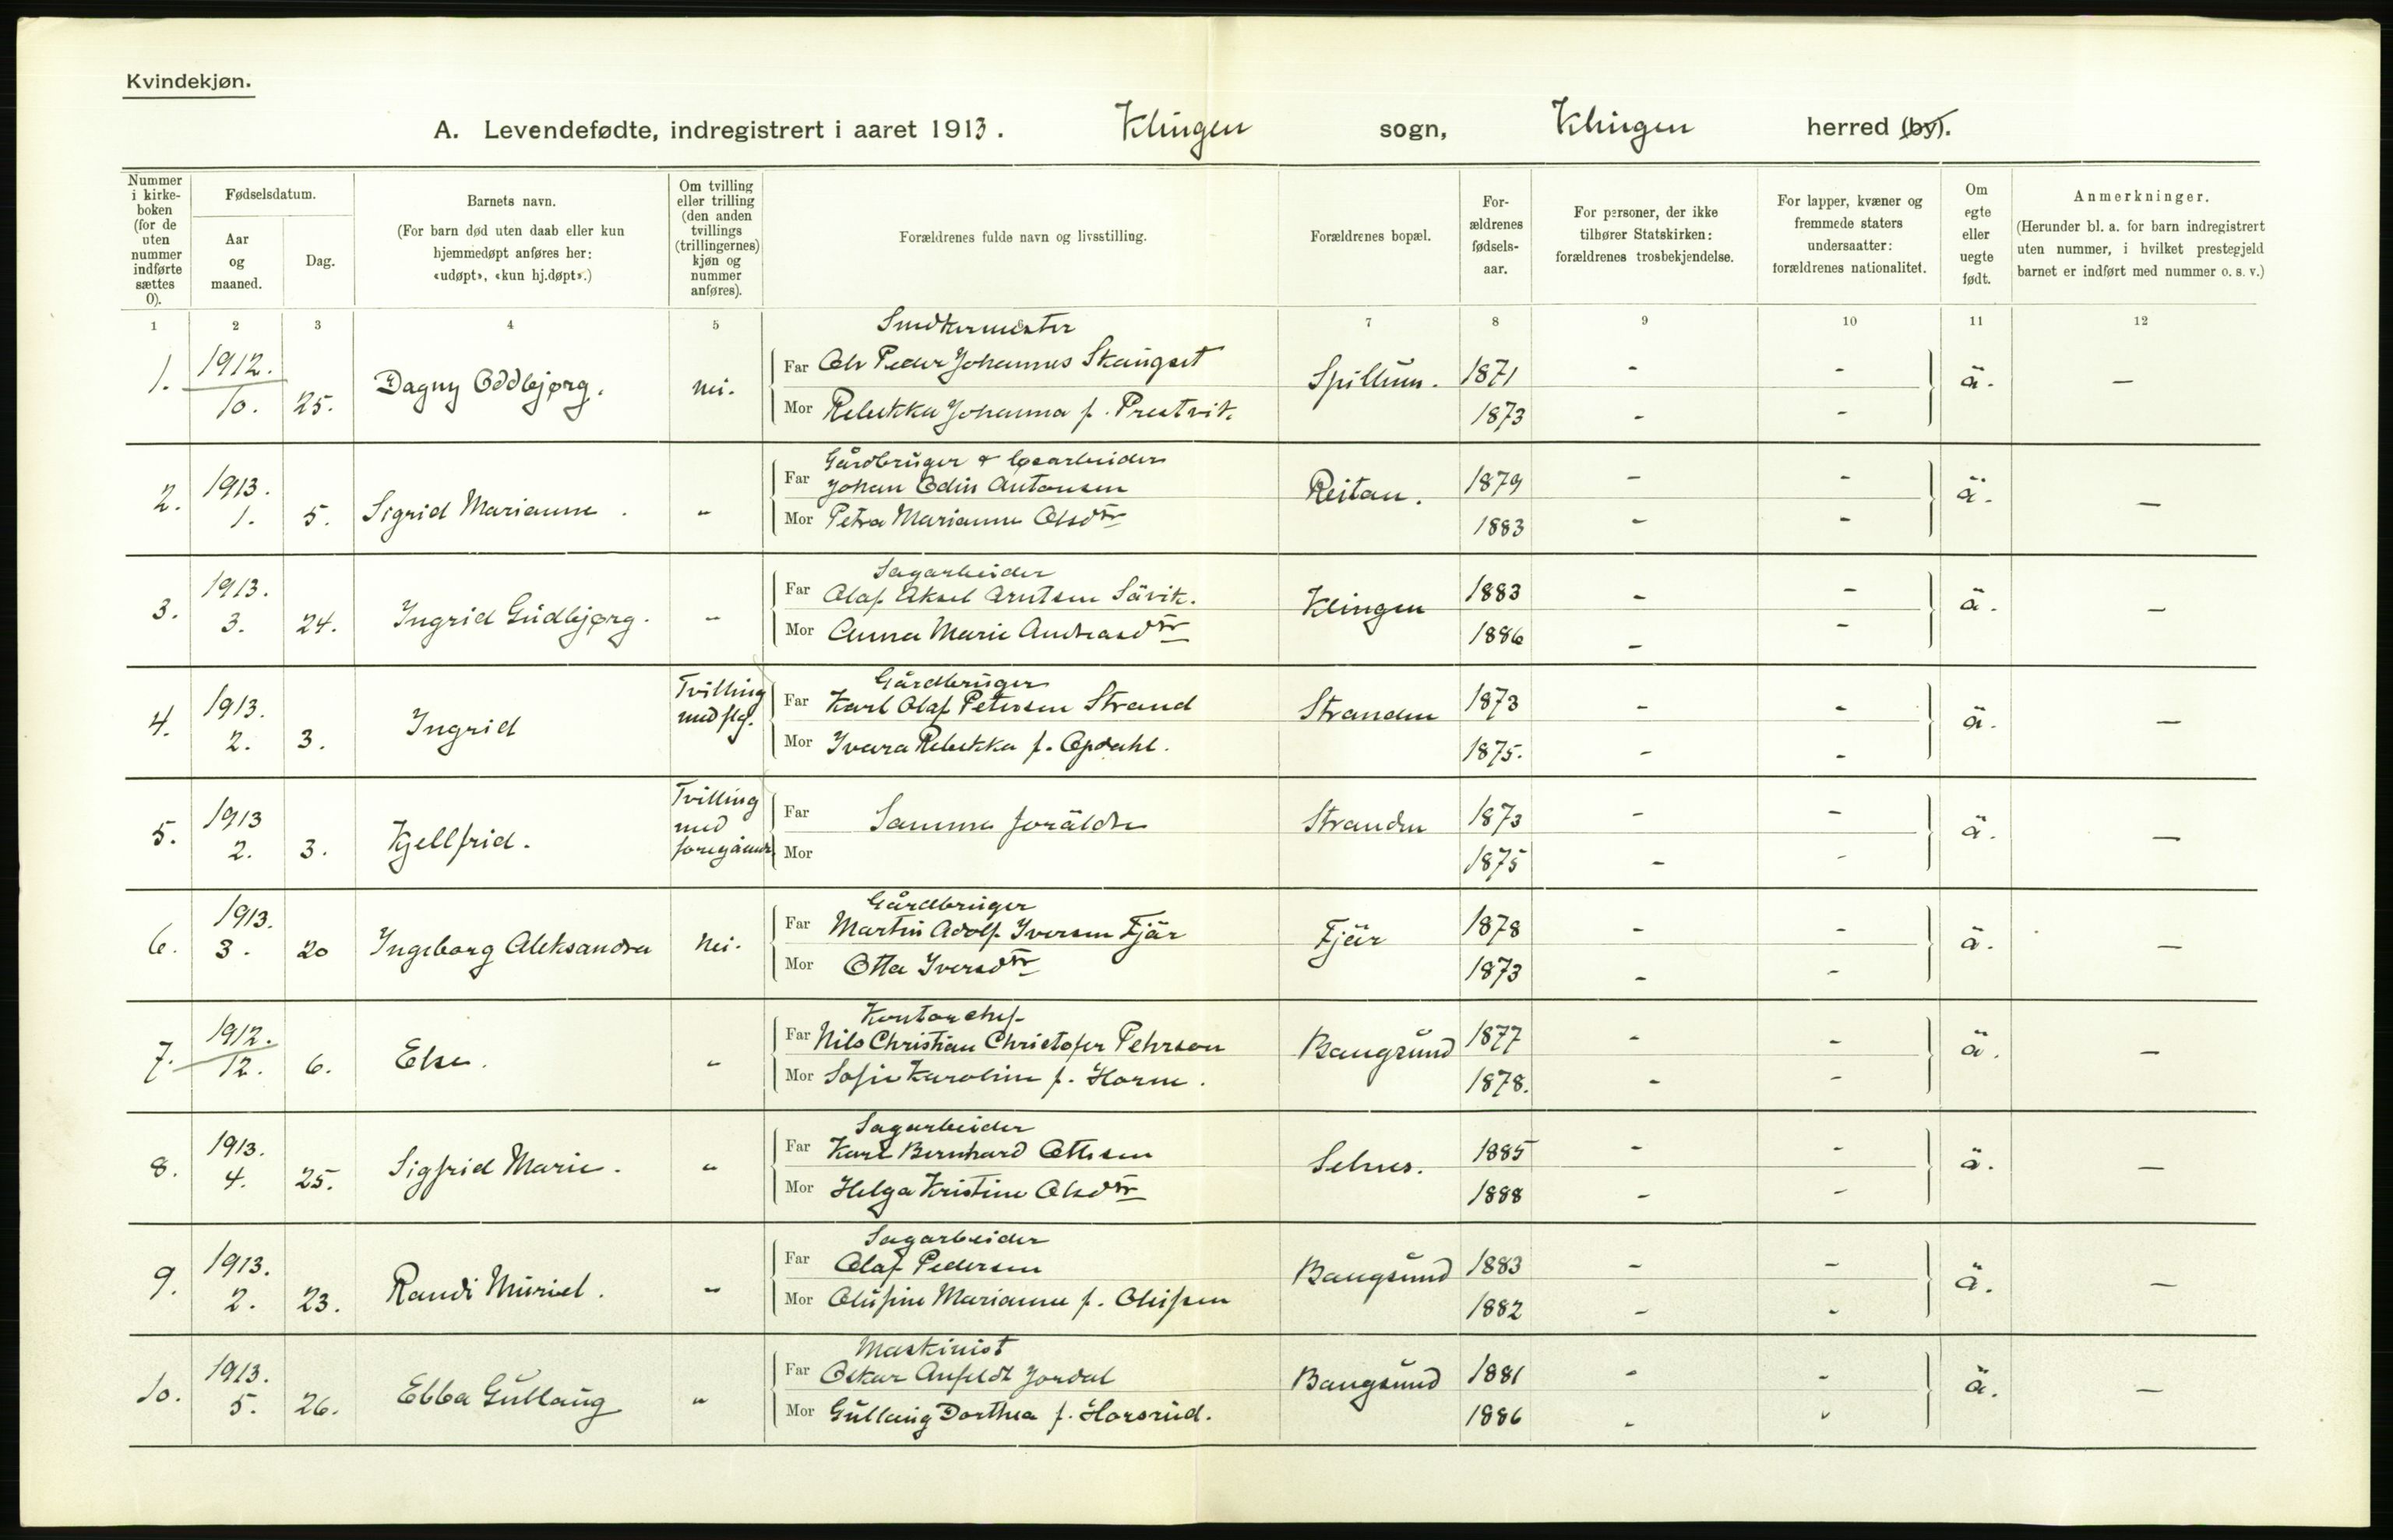 Kvindekjøn.
A. Levendefødte, indregistrert i aaret 1913. Klingen sogn, Klingen herred (by).
Nummer i kirke-boken (for de uten nummer indførte sættes 0).
Fødselsdatum.
Aar og maaned.
Dag.
Barnets navn.
(For barn død uten daab eller kun hjemmedøpt anføres her: «udøpt», «kun hj.døpt».)
Om tvilling eller trilling (den anden tvillings (trillingernes) kjøn og nummer anføres).
Forældrenes fulde navn og livsstilling.
Forældrenes bopæl.
For-ældrenes fødsels-aar.
For personer, der ikke tilhører Statskirken: forældrenes trosbekjendelse.
For lapper, kvæner og fremmede staters undersaatter: forældrenes nationalitet.
Om egte eller uegte født.
Anmerkninger.
(Herunder bl. a. for barn indregistrert uten nummer, i hvilket prestegjeld barnet er indført med nummer o. s. v.)
1 2 3 4 5 7 8 9 10 11 12
Smedkermester
1. 1912. Far Ole Peder Johannes Skaugset Spillum. 1871 - -
10. 25. Dagny Oddbjørg. nei. Mor Rebekka Johanna f. Prestvik. 1873 - - ä. —
Gårdbruger & løsarbeider
2. 1913. Far Johan Edin Antonsen Reitan. 1879 - -
1. 5. Sigrid Marianne. " Mor Petra Marianne Olsdtr 1883 - - ä. —
Sagarbeider
3. 1913. Far Olaf Aksel Arntsen Sävik. Klingen 1883 - -
3. 24. Ingrid Gudbjørg. " Mor Anna Marie Andreasdtr 1886 - - ä. —
Gårdbruger
4. 1913. Tvilling med flg. Far Karl Olaf Petersen Strand Stranden 1873 - -
2. 3. Ingrid Mor Ivara Rebekka f. Opdahl. 1875. - - ä. —
5. 1913 Tvilling med foregående Far Samme foräldre Stranden 1873 - -
2. 3. Kjellfrid. Mor 1875 - - ä. —
Gårdbruger
6. 1913. Far Martin Adolf Iversen Fjär Fjär 1878 - -
3. 20 Ingeborg Aleksandra Nei. Mor Otta Iversdtr 1873 - - ä. —
Kontorchef
7. 1912. Far Nils Christian Christofer Pehrson Bangsund 1877 - -
12. 6. Else. " Mor Sofie Karoline f. Horne. 1878. - - ä. —
Sagarbeider
8. 1913. Far Karl Bernhard Ottesen Selnes. 1885 - -
4. 25. Sigfrid Marie. " Mor Helga Kristine Olsdtr 1888 - - ä. —
Sagarbeider
9. 1913. Far Olaf Pedersen Bangsund 1883 - -
2. 23. Randi Muriel. " Mor Olufine Marianne f. Olufsen 1882 - - ä. —
Maskinist
10. 1913. Far Oskar Anfeldt Jordal Bangsund 1881 - -
5. 26. Ebba Gullaug " Mor Gullaug Dorthea f. Horsrud. 1886 - - ä. —